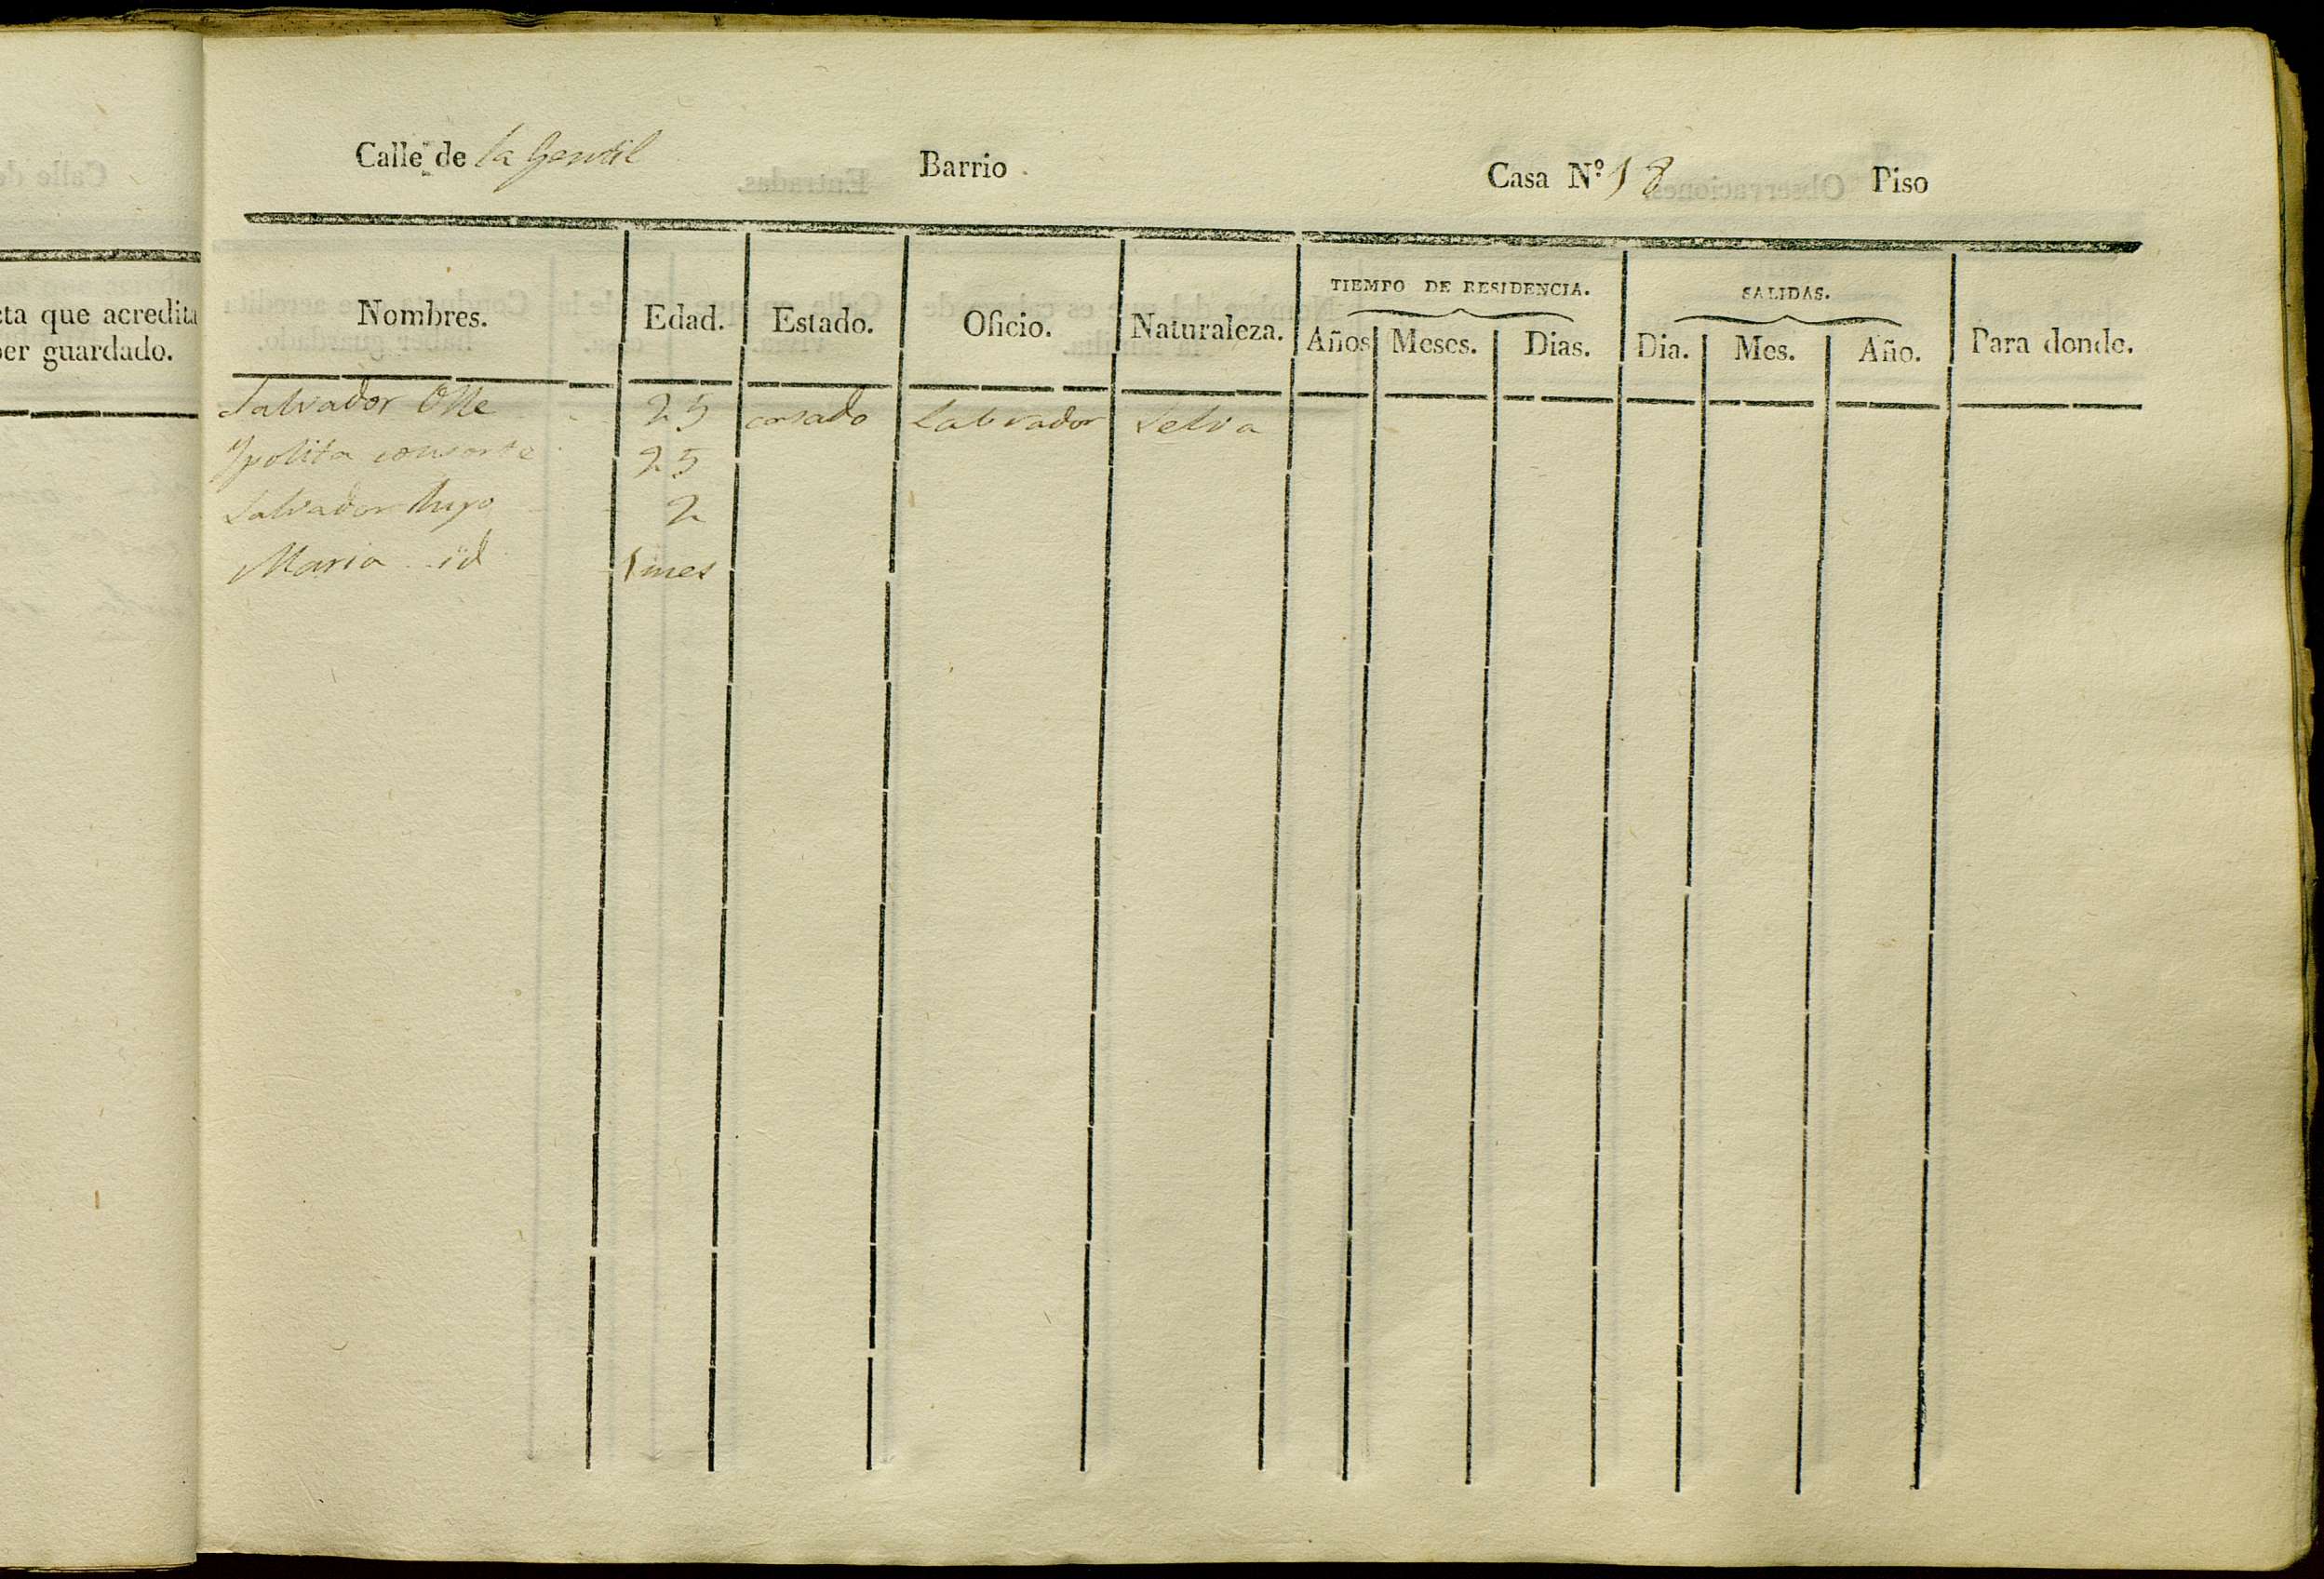 cta que acredita
ber guardado.
Calle de la Gentil Barrio Casa N.º 18 Piso
TIEMPO DE RESIDENCIA. SALIDAS.
Nombres. Edad. Estado. Oficio. Naturaleza. Años Meses. Dias. Dia. Mes. Año. Para donde.
Salvador Olle 25 casado Labrador Selva
Ypolita consorte 25
Salvador hijo 2
Maria id 1 mes